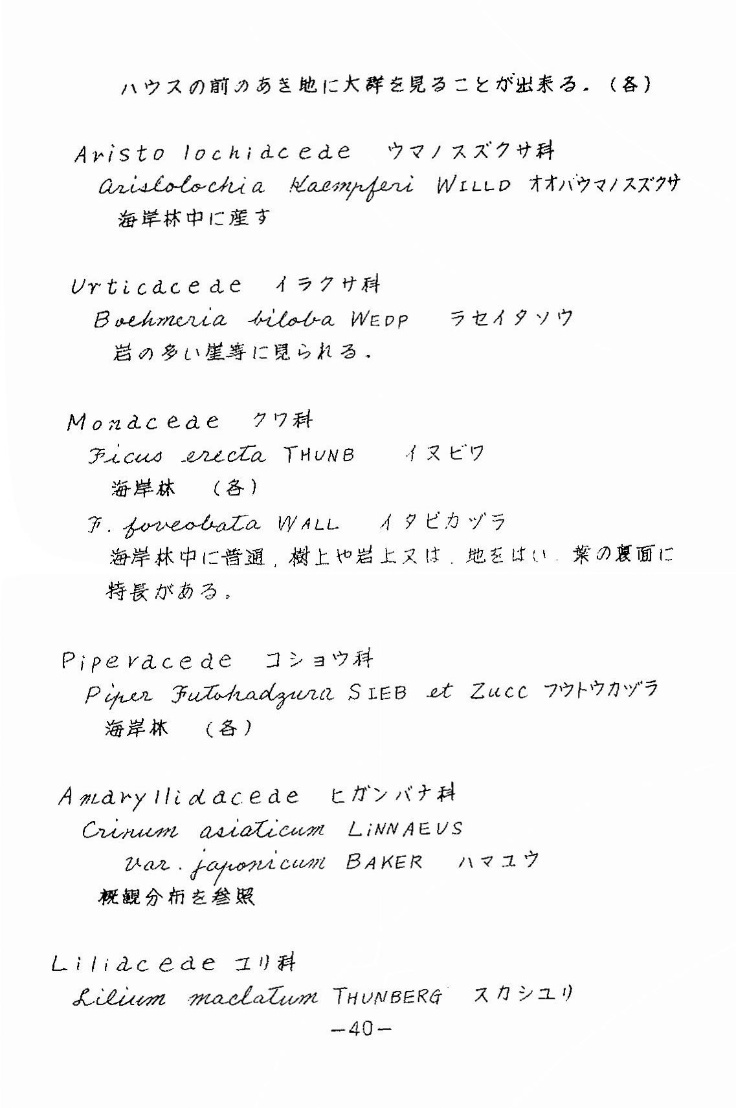 ハウスの前のあき地に大群を見ることが出来る。(各)
Aristo lochiaceae ウマノスズクサ科
Aristolochia Kaempferi WILLD オオバウマノスズクサ
海岸林中に産す
Urticaceae イラクサ科
Boehmeria biloba WEDP ラセイタソウ
岩の多い崖等に見られる。
Monaceae クワ科
Ficus erecta THUNB イヌビワ
海岸林 (各)
F. foveobata WALL イタビカヅラ
海岸林中に普通、樹上や岩上又は、地をはい、葉の裏面に
特長がある。
Piperaceae コショウ科
Piper Futohadzura SIEB et ZUCC フウトウカヅラ
海岸林 (各)
Amaryllidaceae ヒガンバナ科
Crinum asiaticum LINNAEUS
var. japonicum BAKER ハマユウ
概観分布を参照
Liliaceae ユリ科
Lilium maclatum THUNBERG スカシユリ
—40—